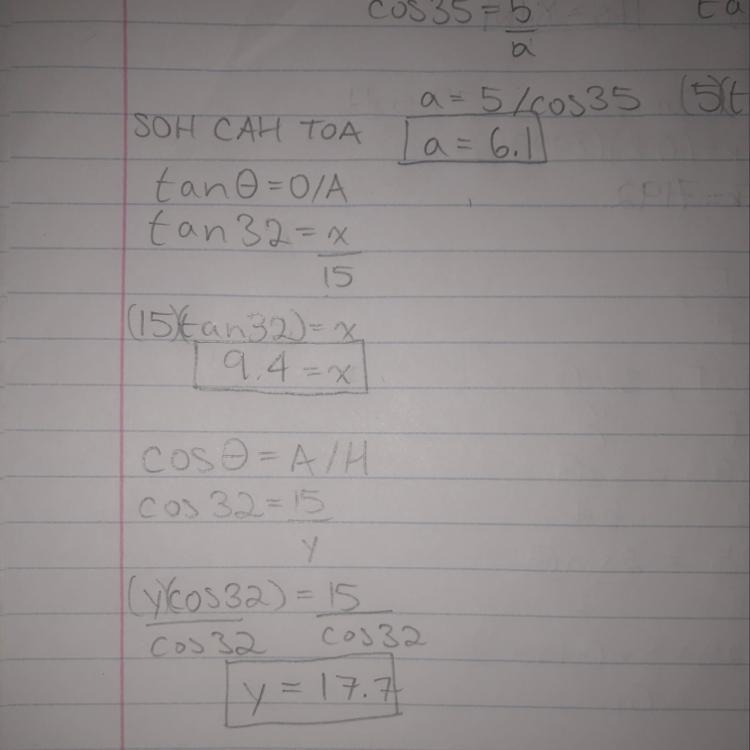 cos35 = 5/a
ta
a = 5/cos35 (5)(t
SOH CAH TOA
a = 6.1
tanθ = O/A
tan32 = x/15
(15)(tan32) = x
9.4 = x
cosθ = A/H
cos32 = 15/y
(y)(cos32)/cos32 = 15/cos32
y = 17.7